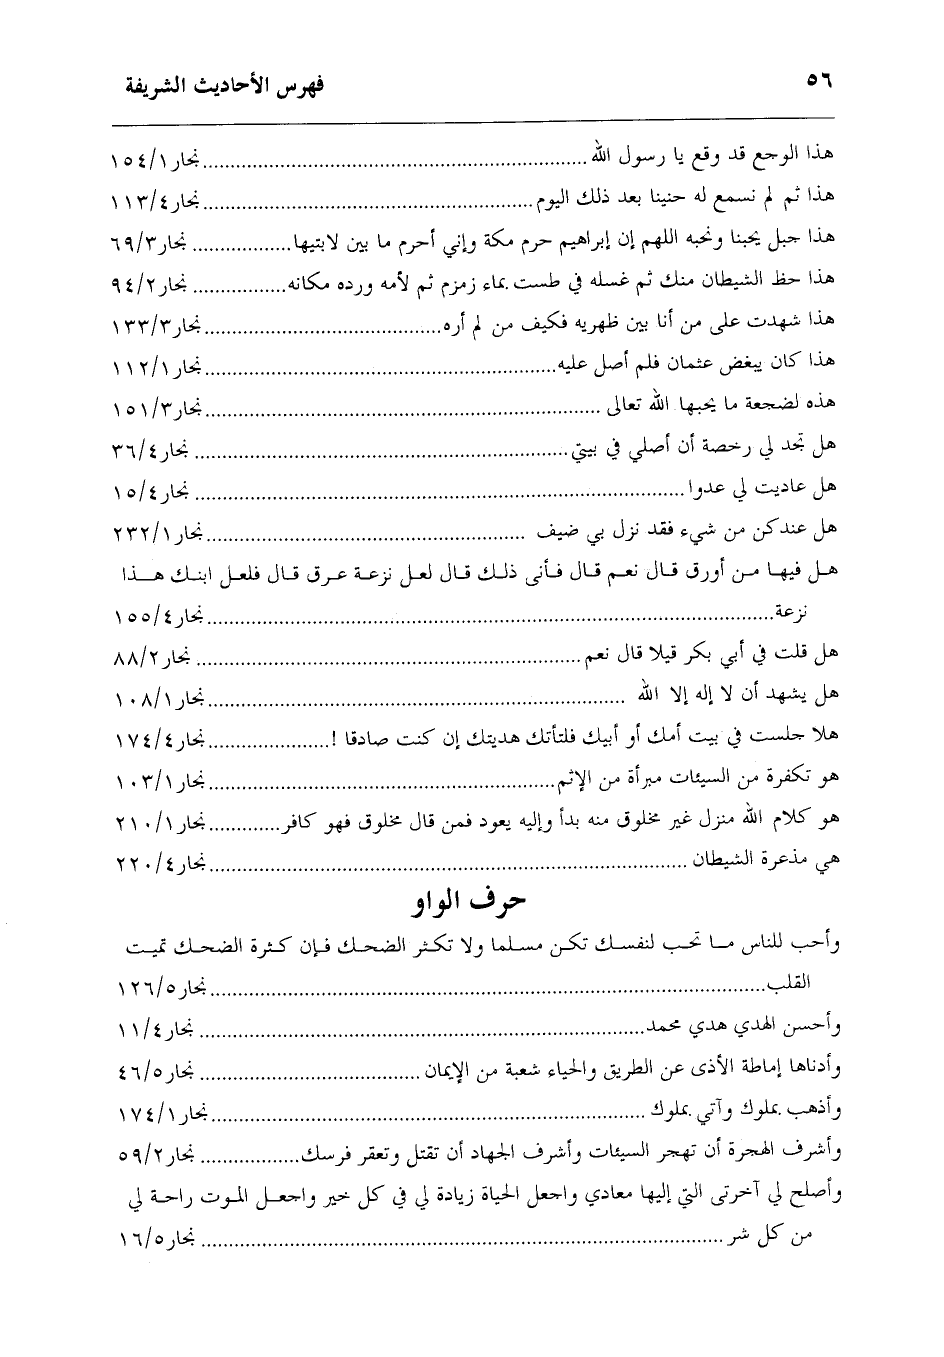 ٥٦ فهرس الأحاديث الشريفة
هذا الوجع قد وقع يا رسول الله ........ نجار١٥٤/١
هذا ثم لم نسمع له حنينا بعد ذلك اليوم ........ نجار١١٣/٤
هذا جبل يحبنا ونحبه اللهم إن إبراهيم حرم مكة وإني أحرم ما بين لابتيها ........ نجار٦٩/٣
هذا حظ الشيطان منك ثم غسله في طست بماء زمزم ثم لأمه ورده مكانه ........ نجار٩٤/٢
هذا شهدت على من أنا بين ظهريه فكيف من لم أره ........ نجار١٣٣/٣
هذا كان يبغض عثمان فلم أصل عليه ........ نجار١١٢/١
هذه لضجعة ما يحبها الله تعالى ........ نجار١٥١/٣
هل تجد لي رخصة أن أصلي في بيتي ........ نجار٣٦/٤
هل عاديت لي عدوا ........ نجار١٥/٤
هل عندكن من شيء فقد نزل بي ضيف ........ نجار٢٣٢/١
هل فيها من أورق قال نعم قال فأنى ذلك قال لعل نزعة عرق قال فلعل ابنك هذا
نزعة ........ نجار١٥٥/٤
هل قلت في أبي بكر قيلا قال نعم ........ نجار٨٨/٢
هل يشهد أن لا إله إلا الله ........ نجار١٠٨/١
هلا جلست في بيت أمك أو أبيك فلتأتك هديتك إن كنت صادقا ! ........ نجار١٧٤/٤
هو تكفرة من السيئات مبرأة من الإثم ........ نجار١٠٣/١
هو كلام الله منزل غير مخلوق منه بدأ وإليه يعود فمن قال مخلوق فهو كافر ........ نجار٢١٠/١
هي مذعرة الشيطان ........ نجار٢٢٠/٤
حرف الواو
وأحب للناس ما تحب لنفسك تكن مسلما ولا تكثر الضحك فإن كثرة الضحك تميت
القلب ........ نجار١٢٦/٥
وأحسن الهدي هدي محمد ........ نجار١١/٤
وأدناها إماطة الأذى عن الطريق والحياء شعبة من الإيمان ........ نجار٤٦/٥
وأذهب بملوك وآتي بملوك ........ نجار١٧٤/١
وأشرف الهجرة أن تهجر السيئات وأشرف الجهاد أن تقتل وتعقر فرسك ........ نجار٥٩/٢
وأصلح لي آخرتى التي إليها معادي واجعل الحياة زيادة لي في كل خير واجعل الموت راحة لي
من كل شر ........ نجار١٦/٥